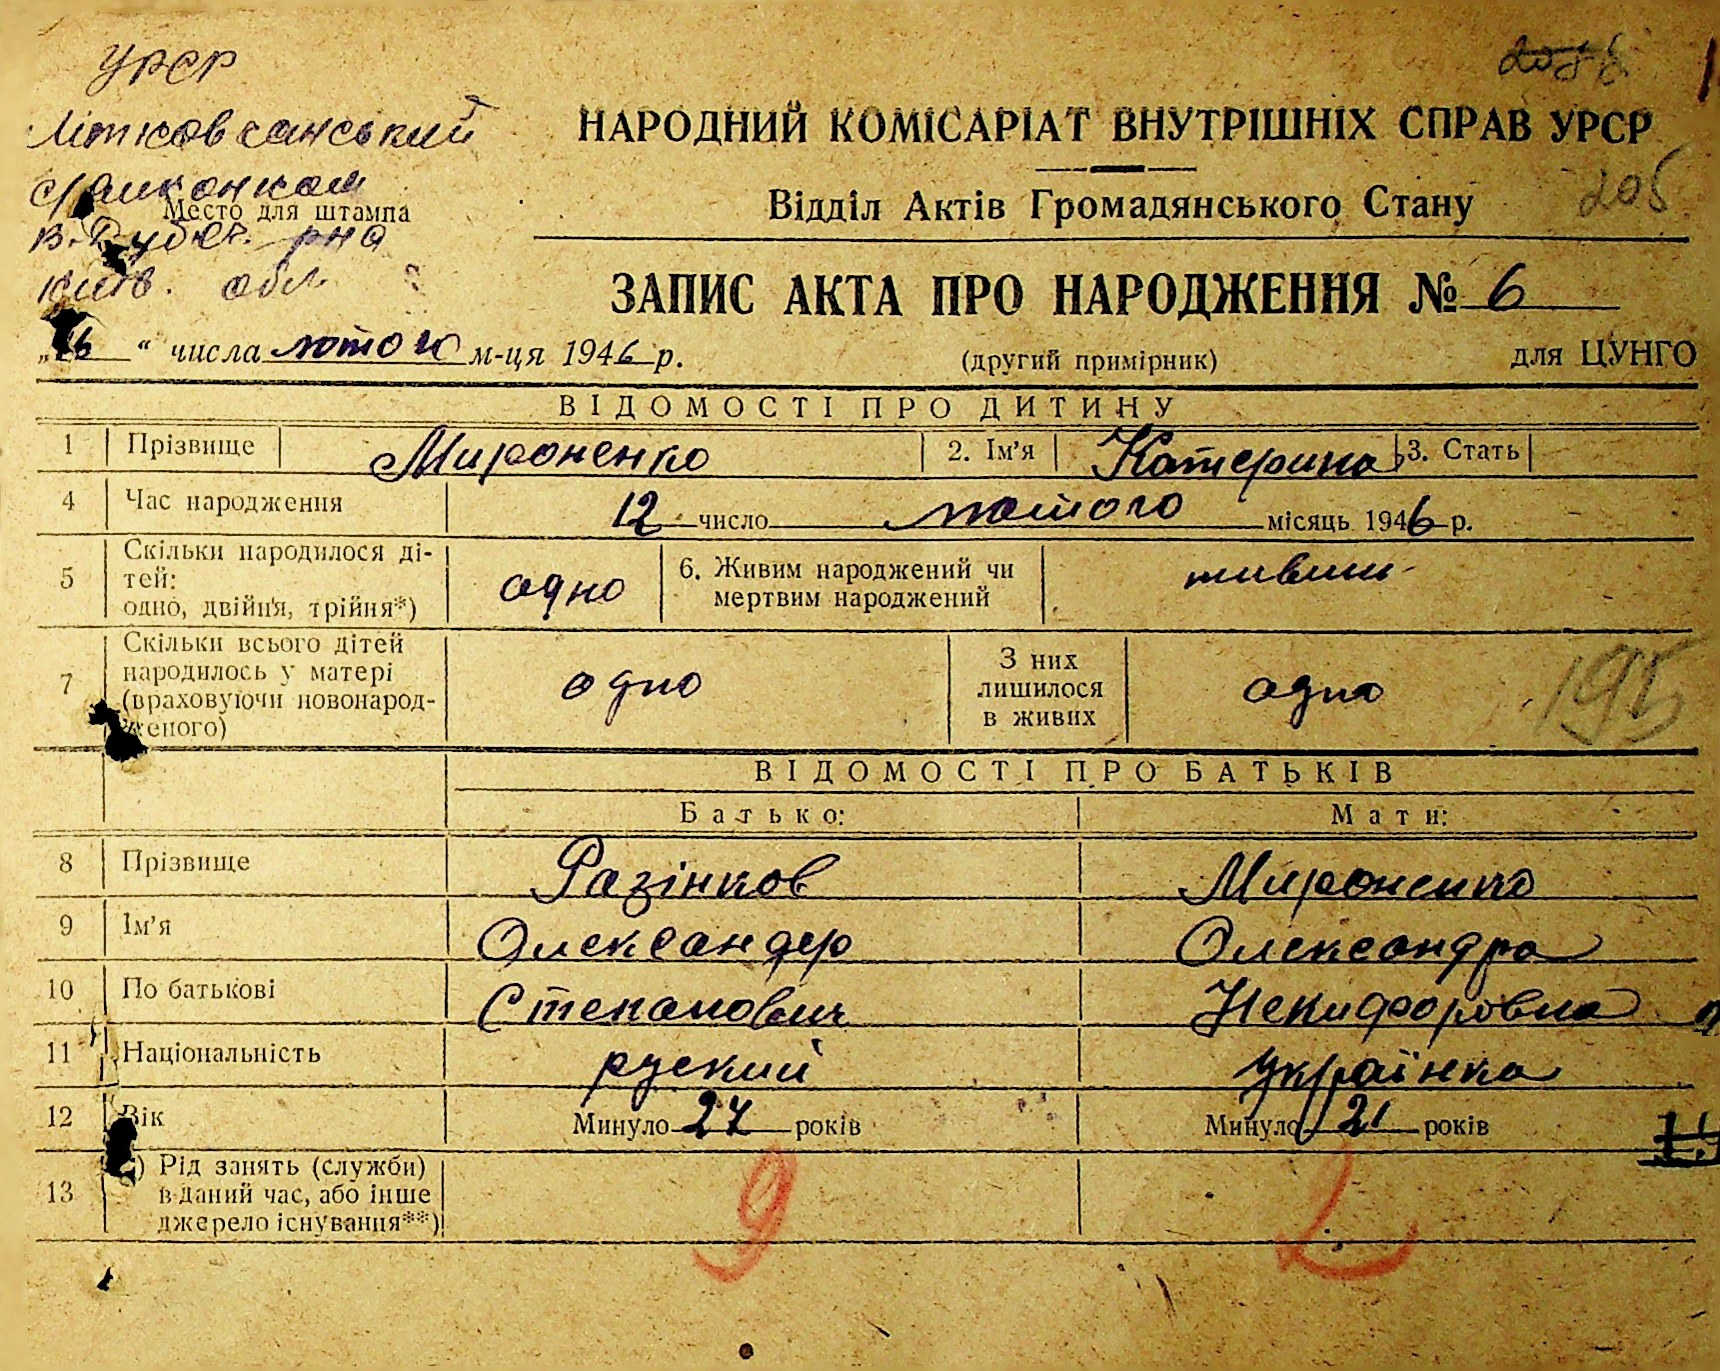 УРСР
НАРОДНИЙ КОМІСАРІАТ ВНУТРІШНІХ СПРАВ УРСР
205
Відділ Актів Громадянського Стану
Место для штампа
Київ. обл.
ЗАПИС АКТА ПРО НАРОДЖЕННЯ № 6
„16“ числа лютого м-ця 1946 р.
(другий примірник)
для ЦУНГО
ВІДОМОСТІ ПРО ДИТИНУ
1 Прізвище Мироненко 2. Ім'я Катерина 3. Стать
4 Час народження 12 число лютого місяць 1946 р.
5 Скільки народилося ді-
тей:
одно, двійня, трійня*) одно 6. Живим народжений чи
мертвим народжений живим
7 Скільки всього дітей
народилось у матері
(враховуючи новонарод-
женого) одно З них
лишилося
в живих одно
195
ВІДОМОСТІ ПРО БАТЬКІВ
Батько: Мати:
8 Прізвище Разінков Мироненко
9 Ім'я Олександер Олександра
10 По батькові Степанович Некифоровна
11 Національність руский Українка
12 Вік Минуло 27 років Минуло 21 років
13 ) Рід занять (служби)
в даний час, або інше
джерело існування**)
9 2